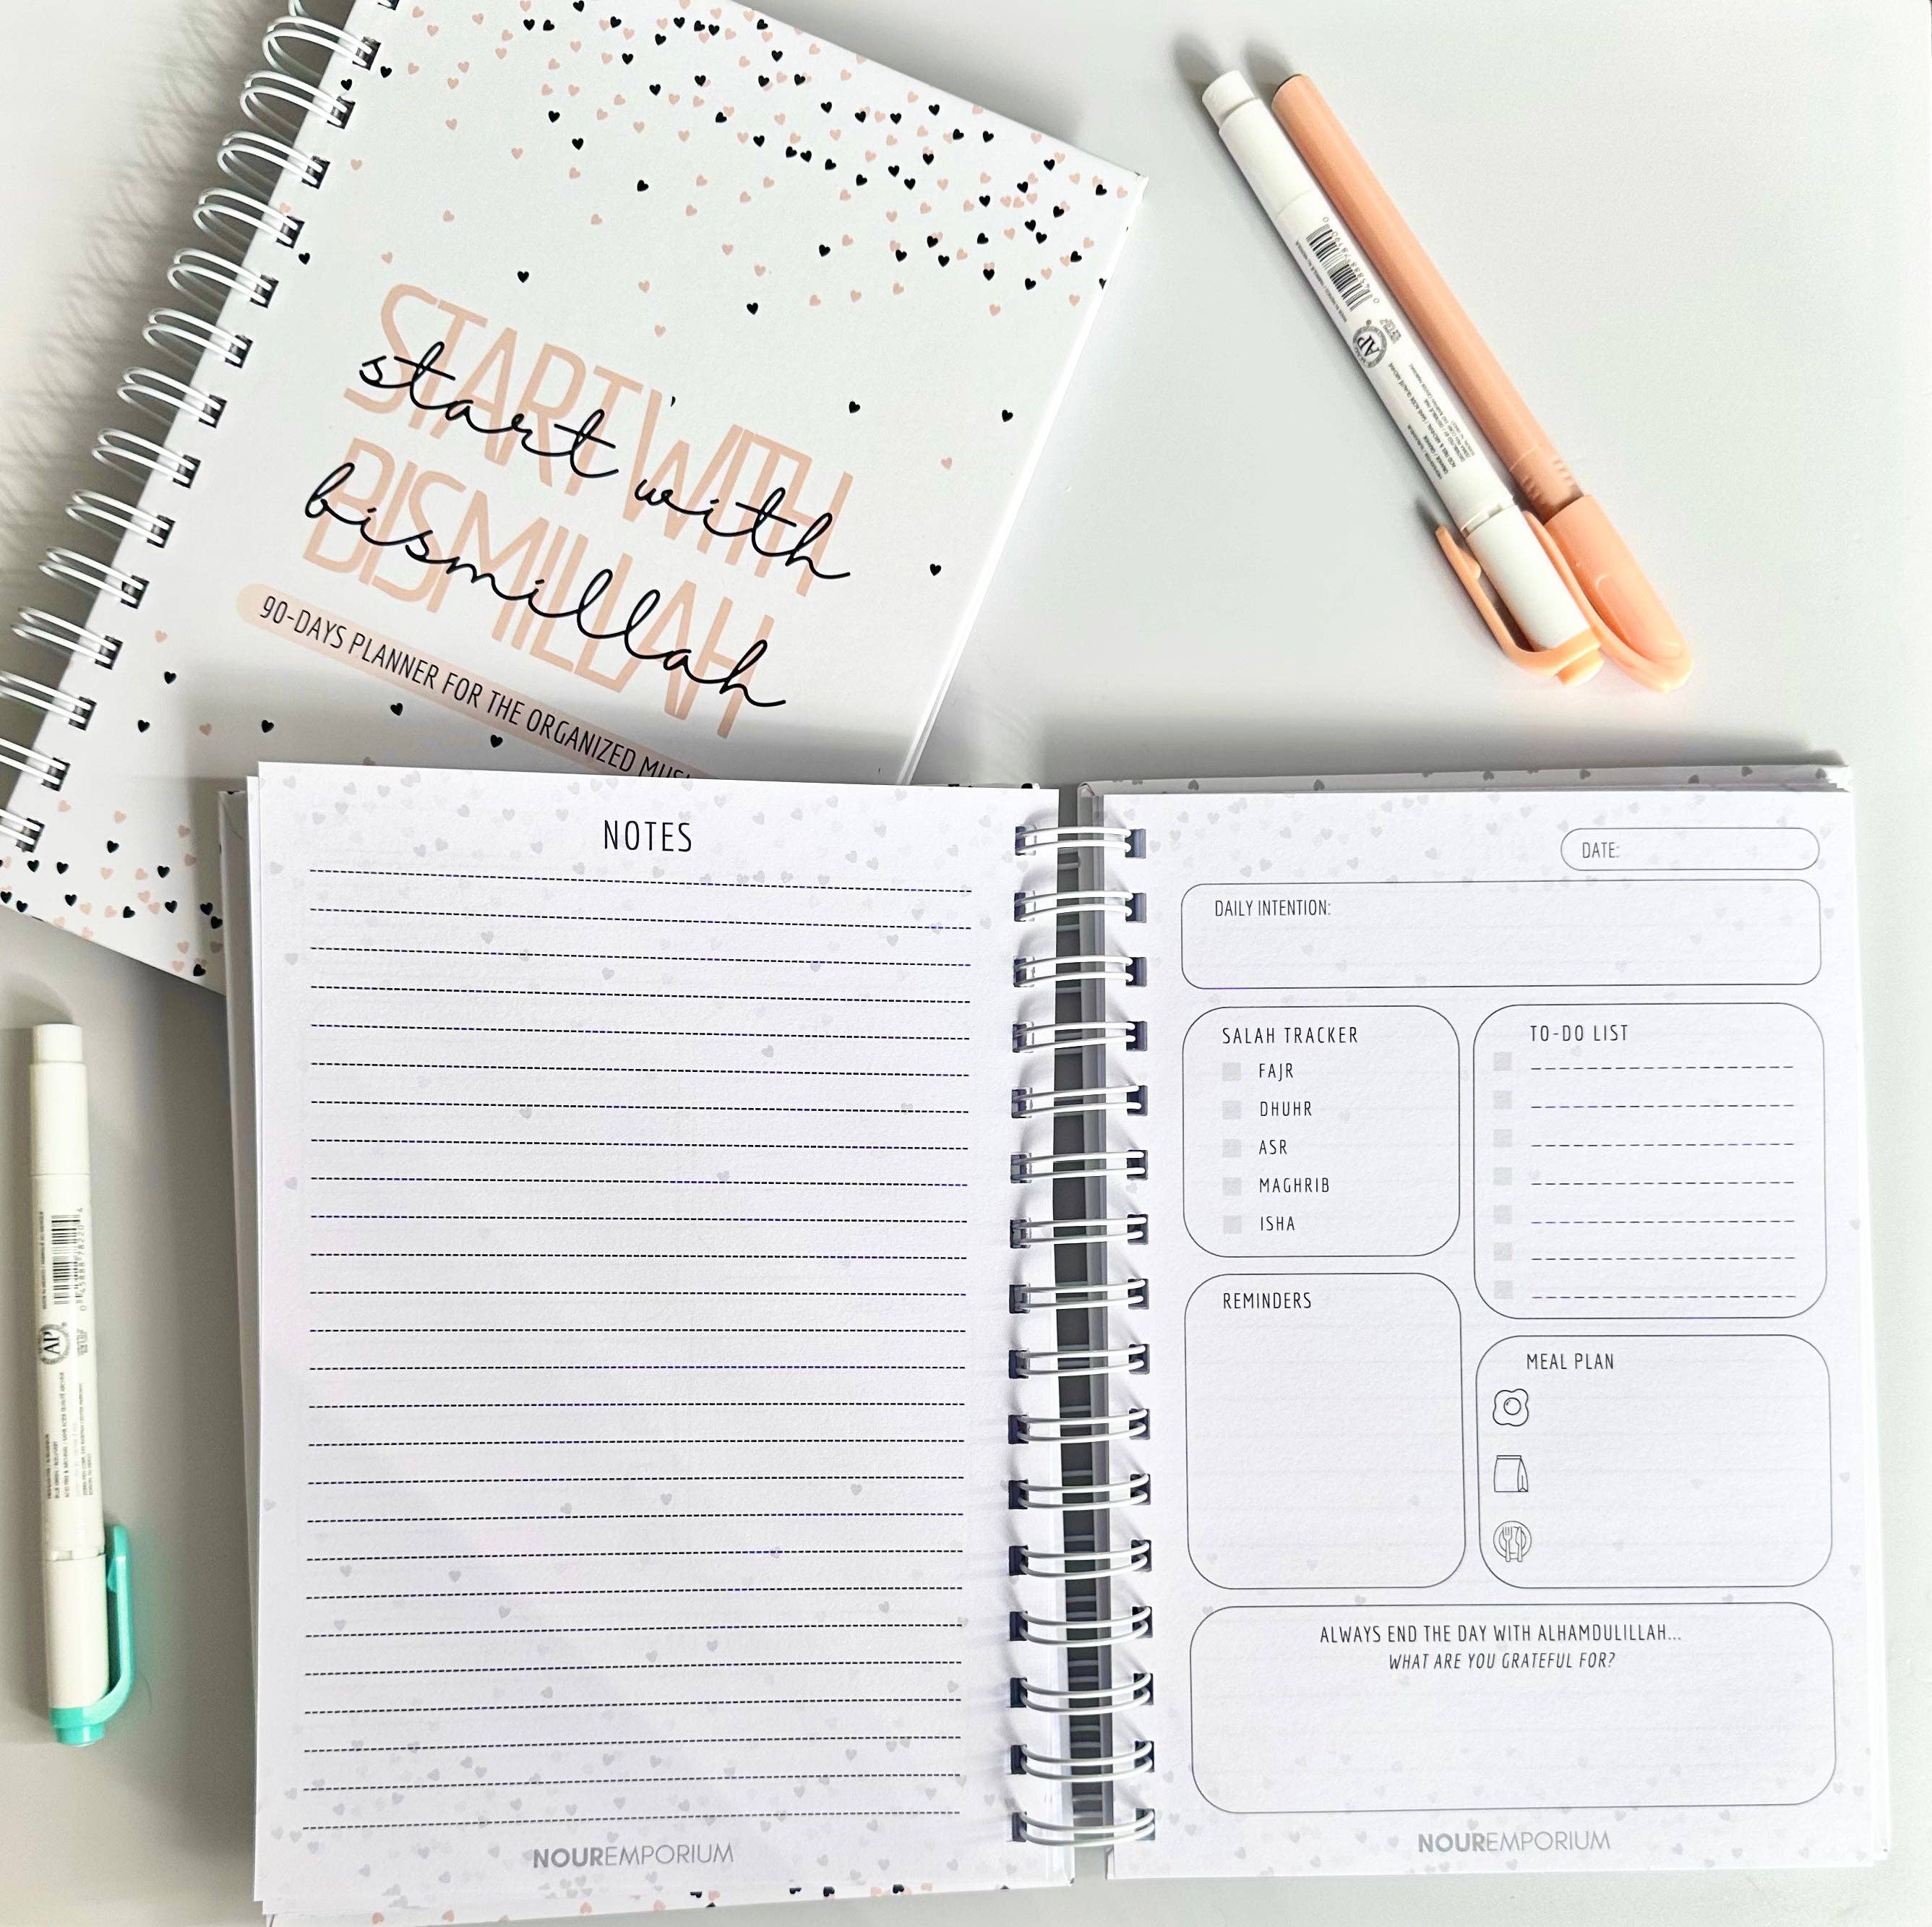 START WITH
BISMILLAH
start with
bismillah
90-DAYS PLANNER FOR THE ORGANIZED
NOTES
NOUREMPORIUM
DATE:
DAILY INTENTION:
SALAH TRACKER
FAJR
DHUHR
ASR
MAGHRIB
ISHA
TO-DO LIST
REMINDERS
MEAL PLAN
ALWAYS END THE DAY WITH ALHAMDULILLAH...
WHAT ARE YOU GRATEFUL FOR?
NOUREMPORIUM
AP
AP